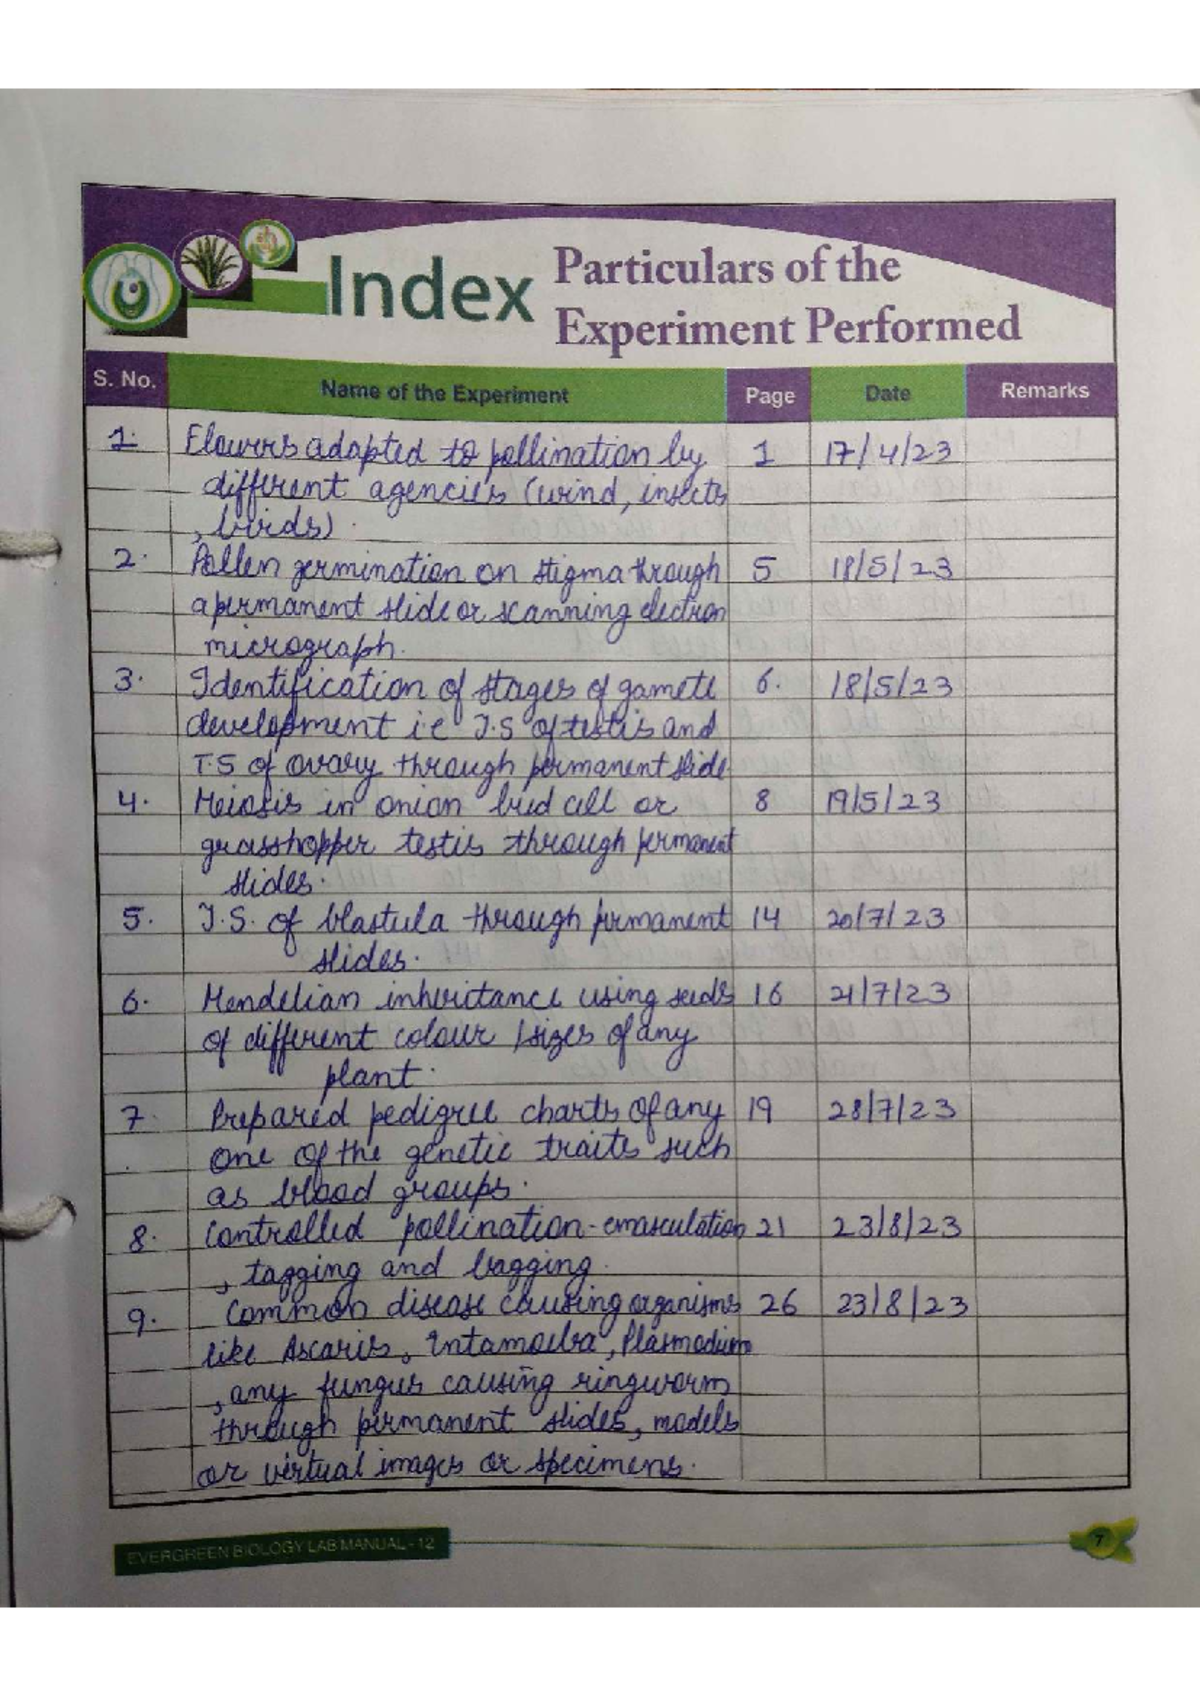 Index
Particulars of the
Experiment Performed
S. No. Name of the Experiment Page Date Remarks
1. Flowers adapted to pollination by 1 17/4/23
different agencies (wind, insects
, birds).
2. Pollen germination on stigma through 5 18/5/23
a permanent slide or scanning electron
micrograph.
3. Identification of stages of gamete 6. 18/5/23
development i.e T.S of testis and
T.S of ovary through permanent slide
4. Meiosis in onion bud cell or 8 19/5/23
grasshopper testis through permanent
slides.
5. T.S. of blastula through permanent 14 20/7/23
slides.
6. Mendelian inheritance using seeds 16 21/7/23
of different colour /sizes of any
plant.
7. Prepared pedigree charts of any 19 28/7/23
one of the genetic traits such
as blood groups.
8. Controlled pollination-emasculation 21 23/8/23
, tagging and bagging.
9. Common disease causing organisms 26 23/8/23
like Ascaris, Entamoeba, Plasmodium
, any fungus causing ringworm
through permanent slides, models
or virtual images or specimens.
EVERGREEN BIOLOGY LAB MANUAL - 12
7